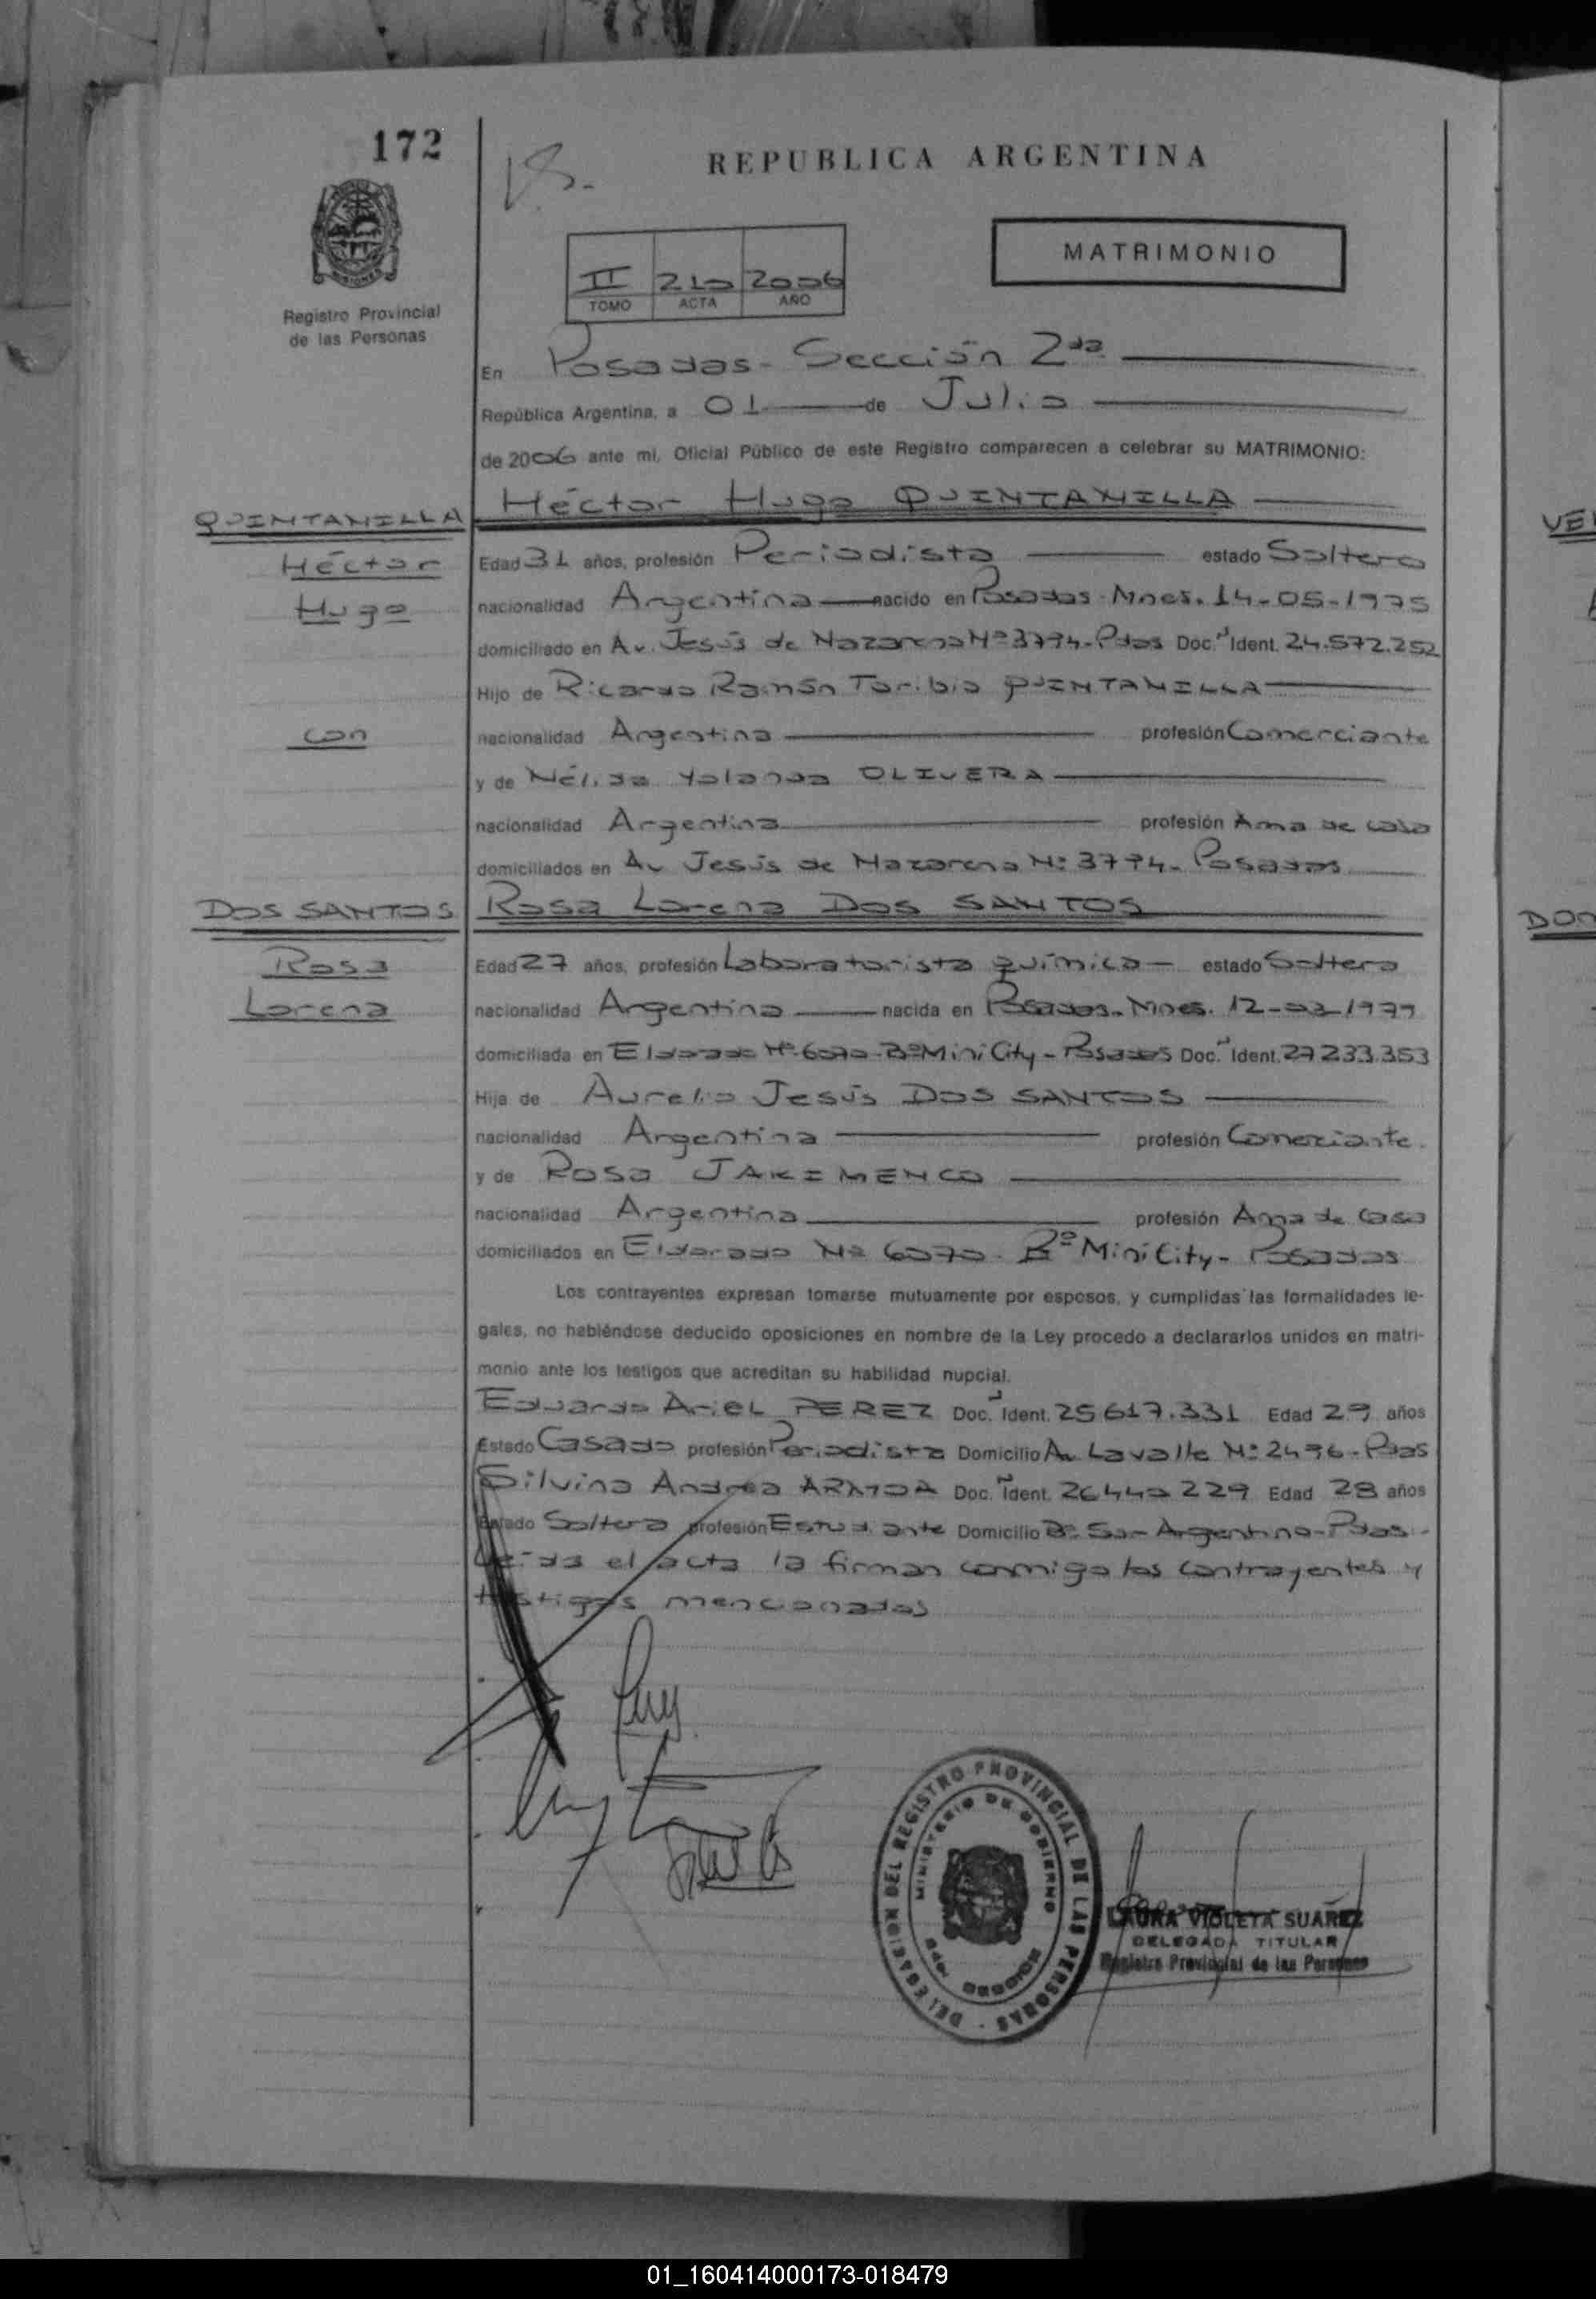 172
REPUBLICA ARGENTINA
MATRIMONIO
II 210 2006
TOMO ACTA AÑO
Registro Provincial
de las Personas
En Posadas - Sección 2da
República Argentina, a 01 de Julio
de 2006 ante mi, Oficial Público de este Registro comparecen a celebrar su MATRIMONIO:
QUINTANILLA
Héctor
Hugo
con
Héctor Hugo QUINTANILLA
Edad 31 años, profesión Periodista estado Soltero
nacionalidad Argentina nacido en Posadas - Mnes. 14-05-1975
domiciliado en Av. Jesús de Nazareno Nº 3794 - Pdas Doc. Ident. 24.572.252
Hijo de Ricardo Ramón Toribio QUINTANILLA
nacionalidad Argentina profesión Comerciante
y de Nélida Yolanda OLIVERA
nacionalidad Argentina profesión Ama de casa
domiciliados en Av Jesús de Nazareno Nº 3794 - Posadas
DOS SANTOS
Rosa
Lorena
Rosa Lorena DOS SANTOS
Edad 27 años, profesión Laboratorista química estado Soltera
nacionalidad Argentina nacida en Posadas - Mnes. 12-03-1979
domiciliada en Eldorado Nº 6070 - Bº Mini City - Posadas Doc. Ident. 27.233.353
Hija de Aurelio Jesús DOS SANTOS
nacionalidad Argentina profesión Comerciante.
y de Rosa JAKIMENCO
nacionalidad Argentina profesión Ama de Casa
domiciliados en Eldorado Nº 6070 - Bº Mini City - Posadas
Los contrayentes expresan tomarse mutuamente por esposos, y cumplidas las formalidades le-
gales, no habiéndose deducido oposiciones en nombre de la Ley procedo a declararlos unidos en matri-
monio ante los testigos que acreditan su habilidad nupcial.
Eduardo Ariel PEREZ Doc. Ident. 25.617.331 Edad 29 años
Estado Casado profesión Periodista Domicilio Av Lavalle Nº 2496 - Pdas
Silvina Andrea Doc. Ident. 26440229 Edad 28 años
Estado Soltera profesión Estudiante Domicilio Bº Sol Argentino - Pdas -
Leída el acta la firman conmigo los contrayentes y
testigos mencionados
DELEGACION DEL REGISTRO PROVINCIAL DE LAS PERSONAS
MINISTERIO DE GOBIERNO
LAURA VIOLETA SUAREZ
DELEGADA TITULAR
Registro Provincial de las Personas
VE
DO
01_160414000173-018479